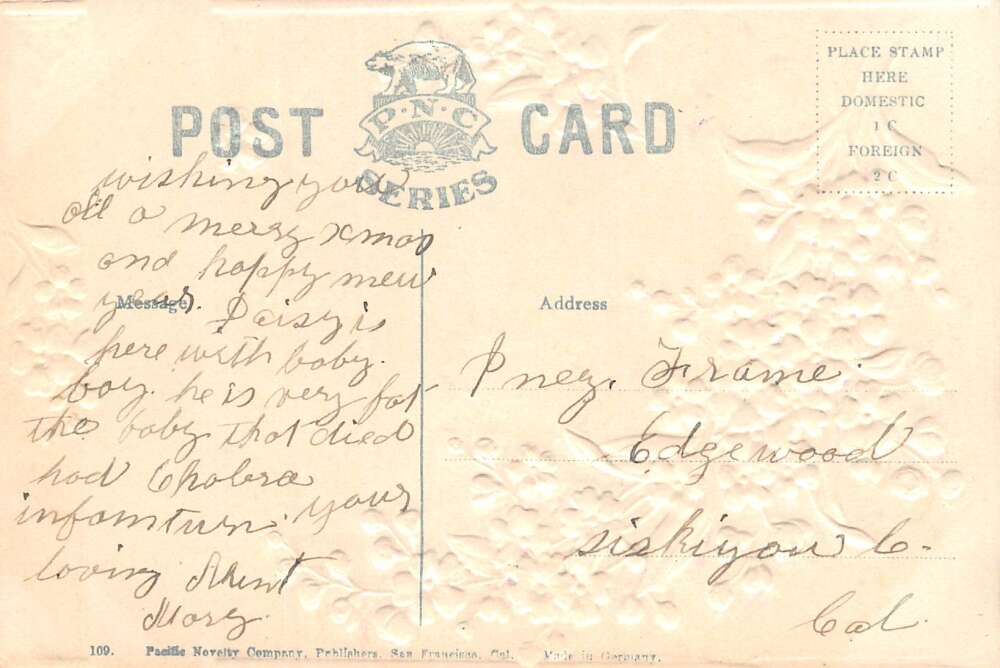 POST CARD
P·N·C
SERIES
PLACE STAMP
HERE
DOMESTIC
1 C
FOREIGN
2 C
wishing you
all a merry xmas
and happy new
year. Daisy is
Message
here with baby.
boy. he is very fat
the baby that died
had Cholera
infantum. your
loving Aunt
Mary.
Address
Inez. Frame.
Edgewood
siskiyou Co.
Cal.
109. Pacific Novelty Company, Publishers, San Francisco, Cal. Made in Germany.